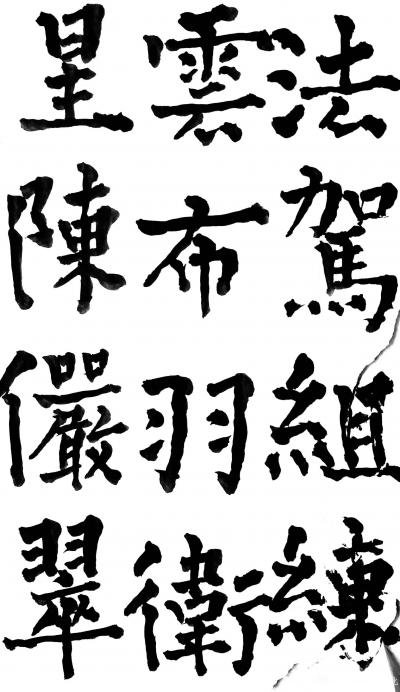 法駕組練
雲布羽衛
星陳儼翠